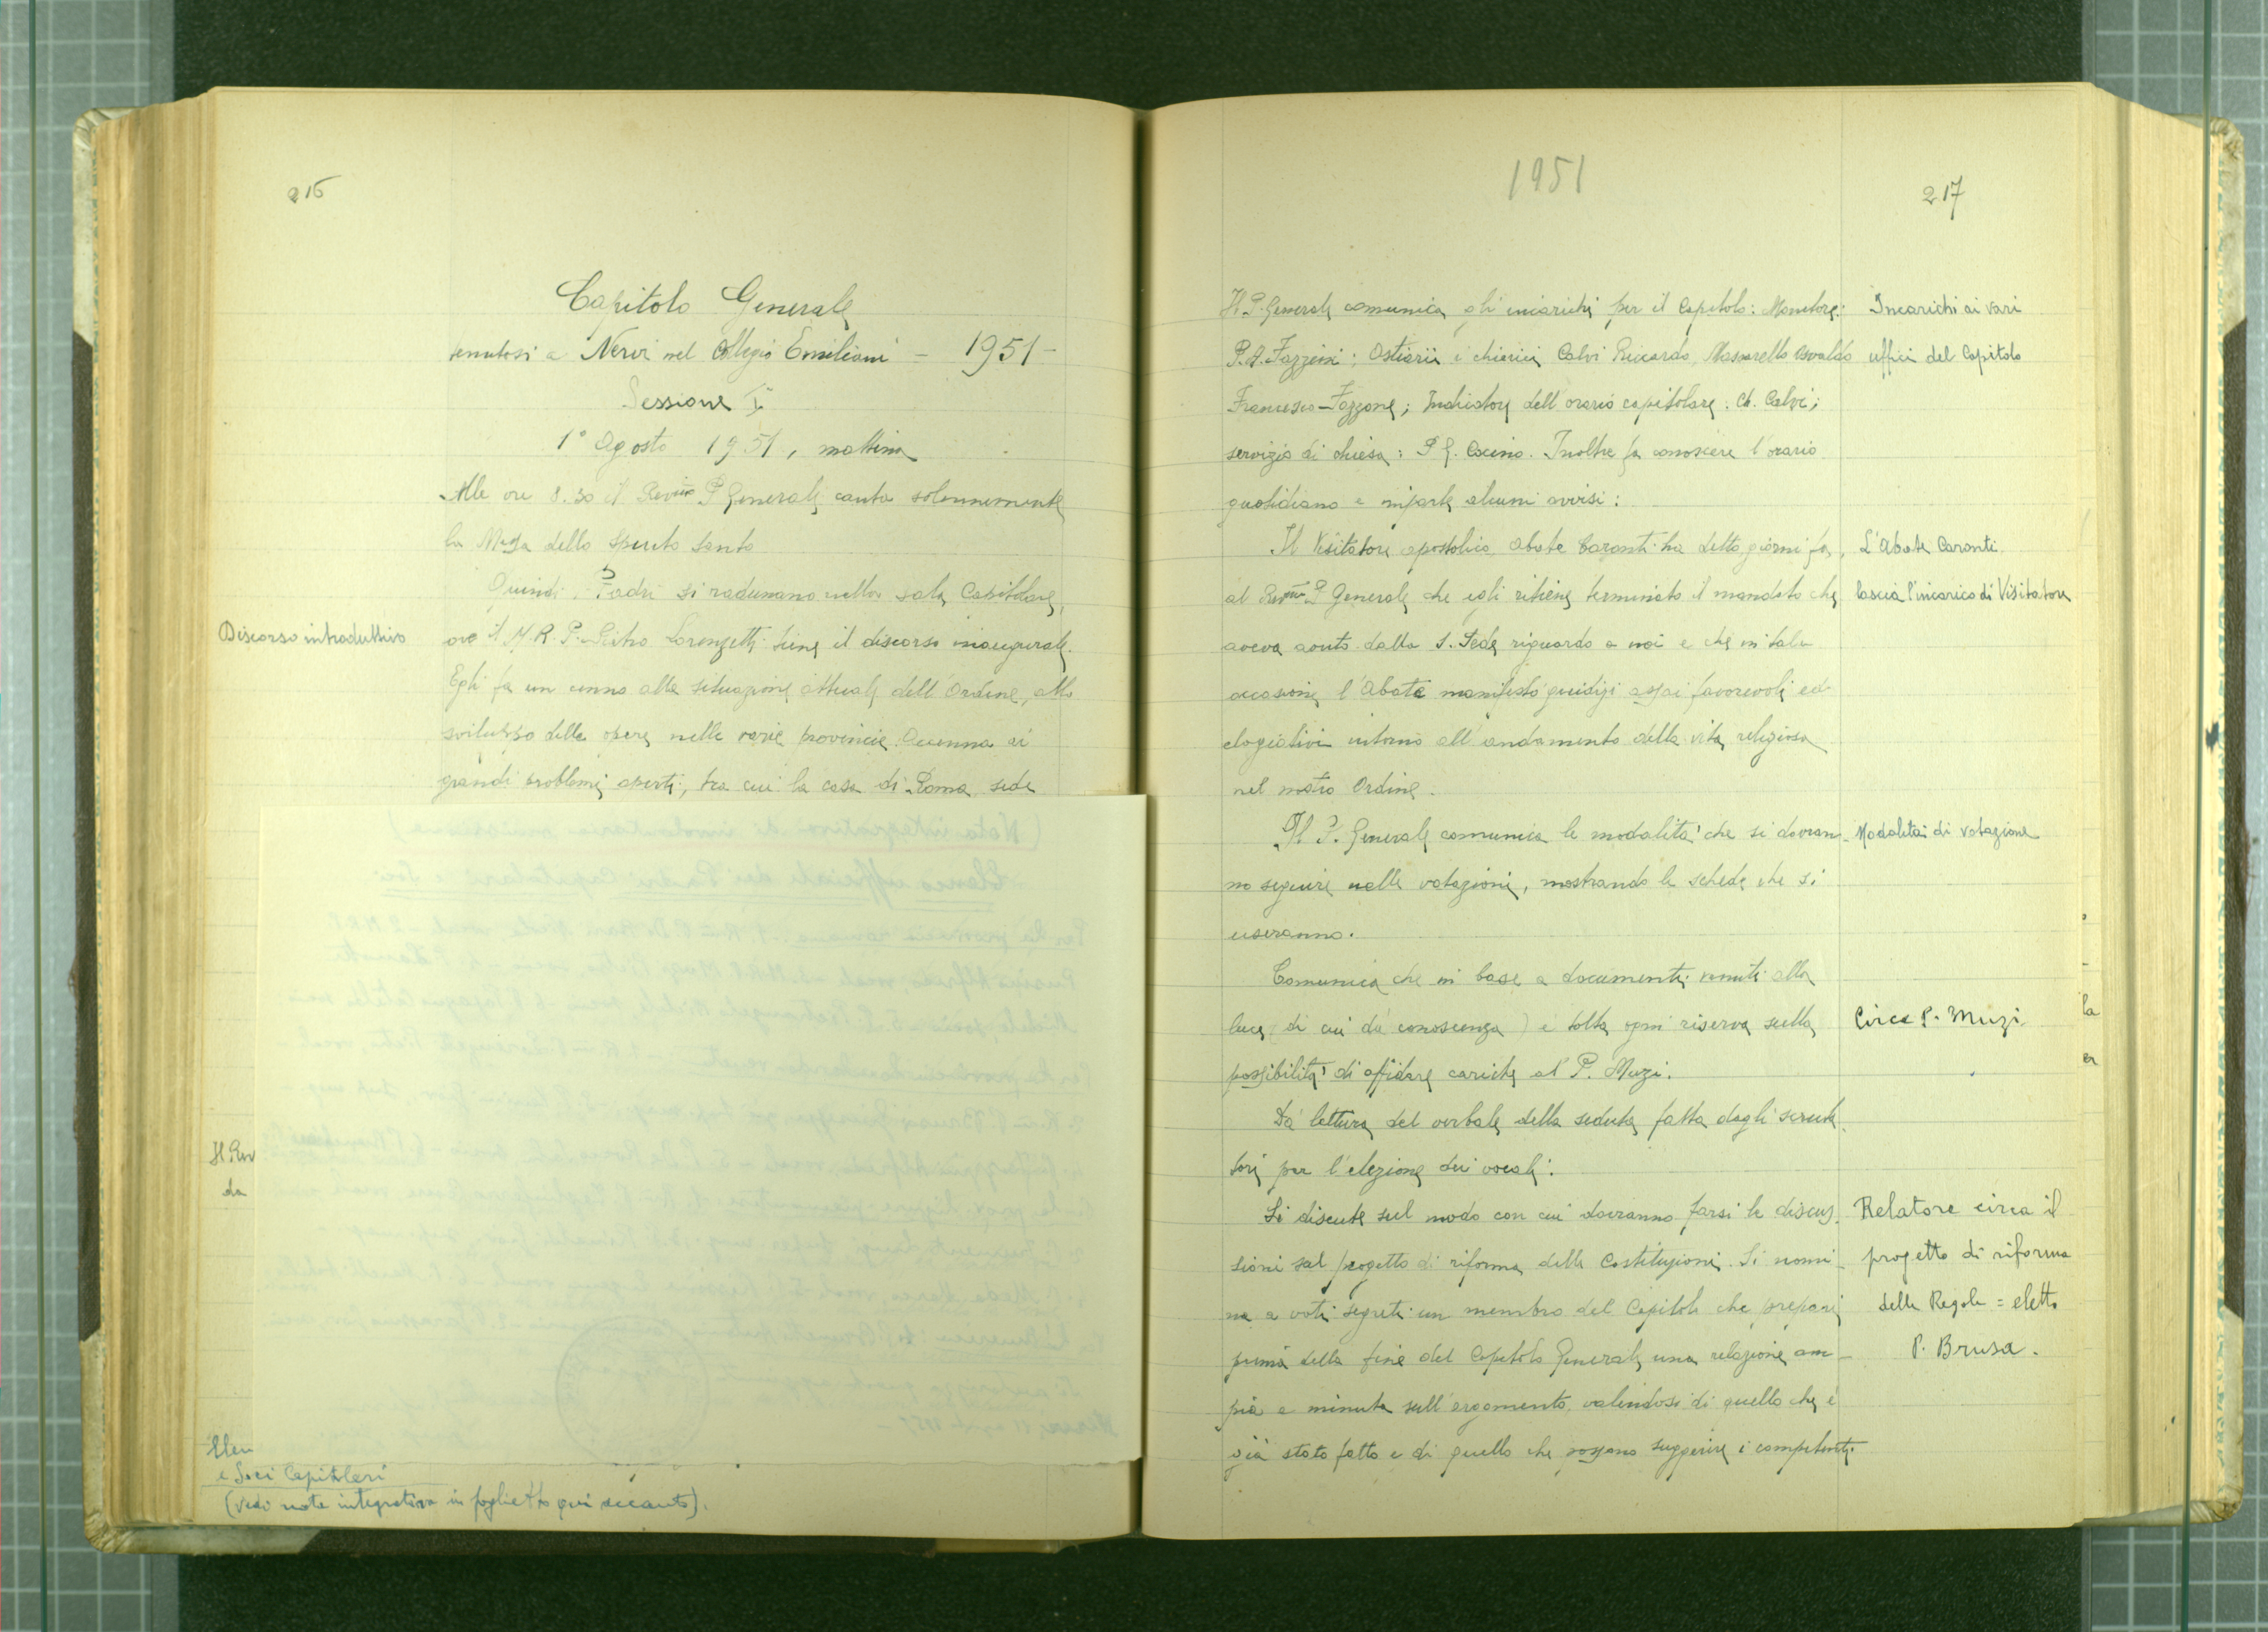 216
Capitolo Generale
tenutosi a Nervi nel Collegio Emiliani - 1951 -
Sessione Iª
1° Agosto 1951, mattina
Alle ore 8.30 il Rev.mo P. Generale canta solennemente
la Messa dello Spirito Santo
Quindi i Padri si radunano nella sala Capitolare,
Discorso introduttivo
ove il M. R. P. Pietro Lorenzetti tiene il discorso inaugurale.
Egli fa un cenno alla situazione attuale dell'Ordine, allo
sviluppo delle opere nelle varie provincie. Accenna ai
grandi problemi aperti, tra cui la casa di Roma sede
Il Rev
da
Elen
e Soci Capitolari
(vedi nota integrativa in foglietto qui accanto).
1951
217
Il P. Generale comunica gli incarichi per il Capitolo: Monitore:
P. A. Fazzini; Ostiarii i chierici Calvi Riccardo, Massarello Osvaldo
Francesco Fazzone; Indicatore dell'orario capitolare: Ch. Calvi;
servizio di chiesa: P. G. Inoltre fa conoscere l'orario
quotidiano e imparte alcuni avvisi:
Incarichi ai vari
uffici del Capitolo
Il Visitatore apostolico abate Caronti ha detto giorni fa,
al Rev.mo P. Generale che egli ritiene terminato il mandato che
aveva avuto dalla S. Sede riguardo a noi e che in tale
occasione l'Abate manifestò giudizi assai favorevoli ed
elogiativi intorno all'andamento della vita religiosa
nel nostro Ordine.
L'Abate Caronti
lascia l'incarico di Visitatore
Il P. Generale comunica le modalità che si dovran-
no seguire nelle votazioni, mostrando le schede che si
useranno.
Modalità di votazione
Comunica che in base a documenti venuti alla
luce (di cui dà conoscenza) è tolta ogni riserva sulla
possibilità di affidare cariche al P. Muzi.
Circa P. Muzi.
Dà lettura del verbale della seduta fatta dagli scruta-
tori per l'elezione dei vocali.
Si discute sul modo con cui dovranno farsi le discus-
sioni sul progetto di riforma delle Costituzioni. Si nomi-
na a voti segreti un membro del Capitolo che prepari
prima della fine del Capitolo Generale una relazione am-
pia e minuta sull'argomento, valendosi di quello che è
già stato fatto e di quello che possano suggerire i competenti.
Relatore circa il
progetto di riforma
delle Regole = eletto
P. Brusa.
la
er